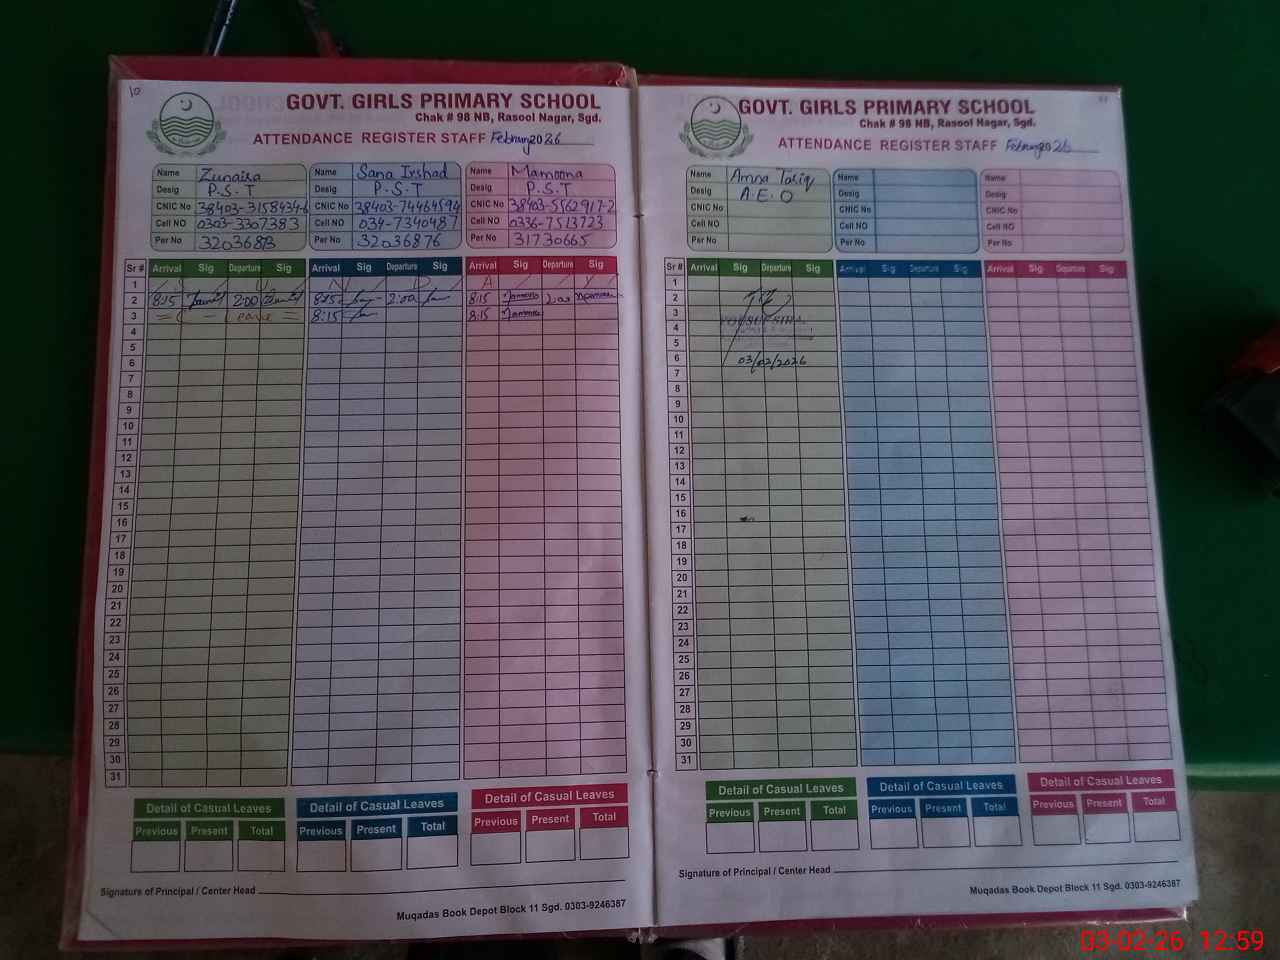 10
GOVT. GIRLS PRIMARY SCHOOL
Chak # 98 NB, Rasool Nagar, Sgd.
ATTENDANCE REGISTER STAFF February 2026
Name Zunaira
Desig P.S.T
CNIC No 38403-3158434-6
Cell NO 0303-3307383
Per No 32036883
Name Sana Irshad
Desig P.S.T
CNIC No 38403-7446459
Cell NO 034-7340487
Per No 32036876
Name Mamoona
Desig P.S.T
CNIC No 38403-5562917-2
Cell NO 0336-7513723
Per No 31730665
Sr # Arrival Sig Departure Sig Arrival Sig Departure Sig Arrival Sig Departure Sig
1 S U N D A Y
2 8:15 2:00 8:15 2:00 8:15 Mamoona 2:00 Mamoona
3 C - Leave 8:15 8:15 Mamoona
4
5
6
7
8
9
10
11
12
13
14
15
16
17
18
19
20
21
22
23
24
25
26
27
28
29
30
31
Detail of Casual Leaves
Previous Present Total
Detail of Casual Leaves
Previous Present Total
Detail of Casual Leaves
Previous Present Total
Signature of Principal / Center Head
Muqadas Book Depot Block 11 Sgd. 0303-9246387
GOVT. GIRLS PRIMARY SCHOOL
Chak # 98 NB, Rasool Nagar, Sgd.
ATTENDANCE REGISTER STAFF February 2026
Name Amna Tariq
Desig A.E.O
CNIC No
Cell NO
Per No
Name
Desig
CNIC No
Cell NO
Per No
Name
Desig
CNIC No
Cell NO
Per No
Sr # Arrival Sig Departure Sig Arrival Sig Departure Sig Arrival Sig Departure Sig
1
2
3
4
5
6 03/02/2026
7
8
9
10
11
12
13
14
15
16
17
18
19
20
21
22
23
24
25
26
27
28
29
30
31
Detail of Casual Leaves
Previous Present Total
Detail of Casual Leaves
Previous Present Total
Detail of Casual Leaves
Previous Present Total
Signature of Principal / Center Head
Muqadas Book Depot Block 11 Sgd. 0303-9246387
03-02-26 12:59